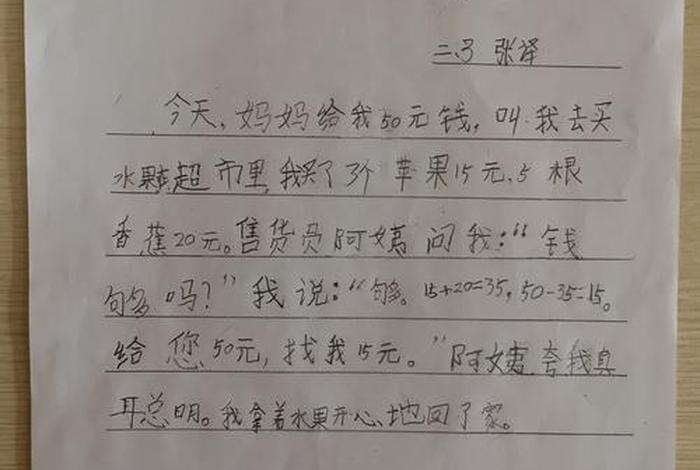 二.3 张译
今天,妈妈给我50元钱,叫我去买
水果,超市里,我买了3个苹果15元、5根
香蕉20元。售货员阿姨问我:“钱
够吗?”我说:“够。15+20=35,50-35=15。
给您50元,找我15元。”阿姨夸我真
聪明。我拿着水果开心地回了家。